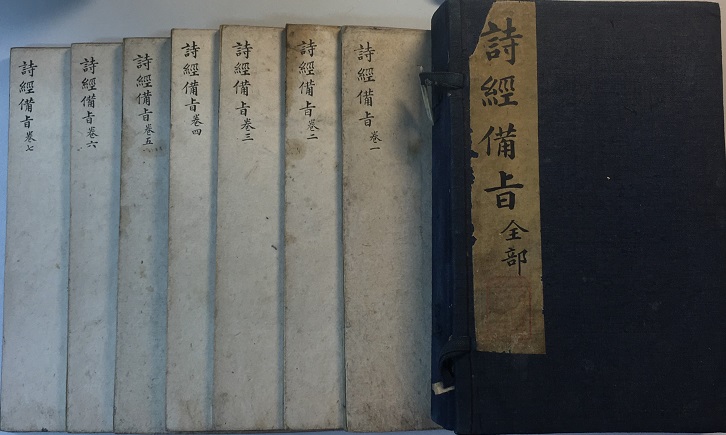 詩經備㫖全部
詩經備㫖卷一
詩經備㫖卷二
詩經備㫖卷三
詩經備㫖卷四
詩經備㫖卷五
詩經備㫖卷六
詩經備㫖卷七